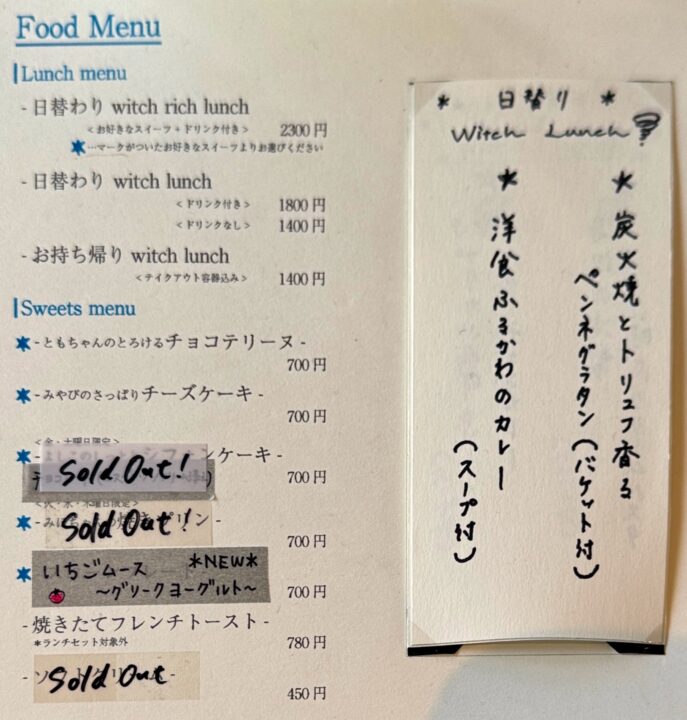 Food Menu
Lunch menu
- 日替わり witch rich lunch
<お好きなスイーツ+ドリンク付き> 2300円
…マークがついたお好きなスイーツよりお選びください
- 日替わり witch lunch
<ドリンク付き> 1800円
<ドリンクなし> 1400円
- お持ち帰り witch lunch
<テイクアウト容器込み> 1400円
Sweets menu
- ともちゃんのとろけるチョコテリーヌ -
700円
- みやびのさっぱりチーズケーキ -
700円
<金・土曜日限定>
シフォンケーキ -
Sold Out!
700円
<火・水・木曜日限定>
プリン -
Sold Out!
700円
いちごムース *NEW*
〜グリークヨーグルト〜
700円
- 焼きたてフレンチトースト -
*ランチセット対象外 780円
Sold Out
450円
* 日替り *
Witch Lunch
* 炭火焼とトリュフ香る
ペンネグラタン(バケット付)
* 洋食ふるかわのカレー
(スープ付)